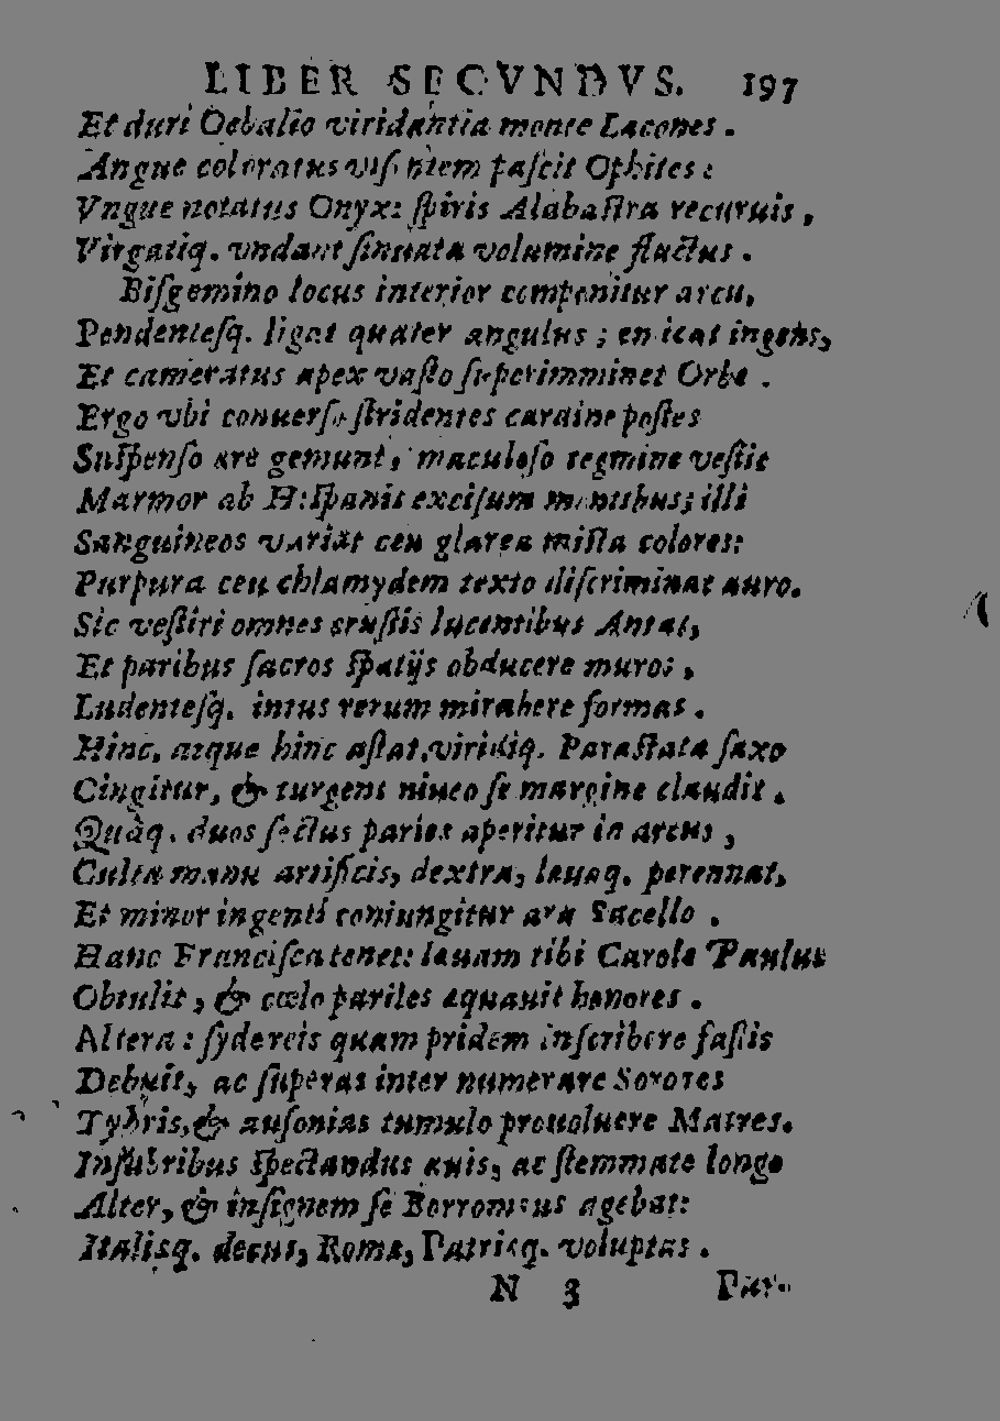 LIBER SECVNDVS. 197
Et duri Oebalio viridantia monte Lacones.
Angue coloratus visu niem pascit Ophites:
Vngue notatus Onyx: spiris Alabastra recuruis,
Virgatiq. vndant sinuata volumine fluctus.
Bisgemino locus interior componitur arcu,
Pendentesq. ligat quater angulus; enicat ingens,
Et cameratus apex vasto superimminet Orbe.
Ergo vbi conuerso stridentes cardine postes
Suspenso ære gemunt, maculoso tegmine vestit
Marmor ab Hispanis excisum montibus; illi
Sanguineos variat ceu glarea mista colores:
Purpura ceu chlamydem texto discriminat auro.
Sic vestiri omnes crustis lucentibus Antas,
Et paribus sacros spatijs obducere muros,
Ludentesq. intus rerum mirabere formas.
Hinc, atque hinc astat, viridiq. Parastata saxo
Cingitur, & turgens niueo se margine claudit.
Quàq. duos sectus paries aperitur in arcus,
Culta manu artificis, dextra, leuaq. perennat,
Et minor ingenti coniungitur ara Sacello.
Hanc Francisca tenet: leuam tibi Carole Paulus
Obtulit, & cœlo pariles æquauit honores.
Altera: sydereis quam pridem inscribere fastis
Debuit, ac superas inter numerare Sorores
Tybris, & ausonias tumulo prouoluere Matres.
Insubribus spectandus auis, ac stemmate longo
Alter, & insignem se Borromæus agebat:
Italisq. decus, Romæ, Patriæq. voluptas.
N 3 Pur-